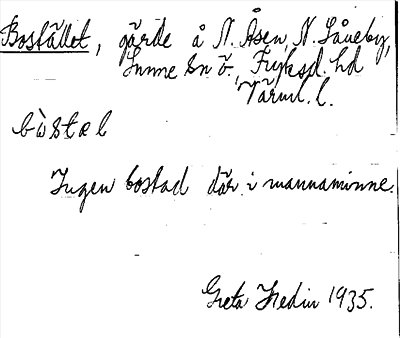 Bostället, gärde å N. Åsen, N. Såneby,
Sunne sn ö., Fryksd. hd
Värml. l.
bòstæl
Ingen bostad där i mannaminne.
Greta Hedin 1935.